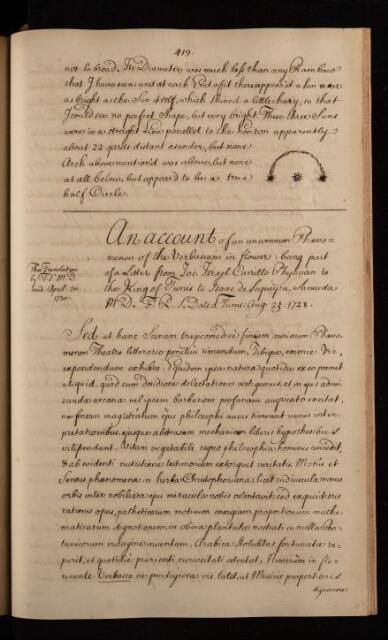 419.
not so broad. Its Diameter was much less than any Rainbow
that I have seen: and at each End of it there appear'd a Sun
as bright as the Sun itself, which shined a little hazy, so that
I could see no perfect Shape, but very bright. These three Suns
were in a straight Line parallel to the horizon apparently
about 22 yards distant asunder, but none
Arch above mention'd was above, but none
at all below, but appear'd to be a true
half Circle.
An account of an uncommon Phæno=
menon of the Verbascum in flower: being part
of a Letter from Jos. Israel Carrillo Physician to
the King of Tunis to Isaac de Sequeyra Samuda
M.D. F.R.S. Dated Tunis: Aug. 24. 1728.
The Translation
by T.S. M.D.
read April. 30.
1730.
Sed ut hanc Scenam tragicomediæ finiam, curiosum Phæno=
menon Theatro litterario penitius rimandum, Tibique, eximie Vir,
expendendum exhibeo. Equidem ipsa natura quotidie ex opromit
aliquid, quod cum desidiosa delectatione vertigerint, et in quis admi=
randa arcana vel ipsam barbariem profanam auspicato excitat,
ne forsan magistralium ejus philosophi aucus timerent vanis inter=
pretationibus, ejusque abstrusam mechanicen liberis hypothesibus
vilipendant. Vitam vegetabili regno philosophia hominis concedit,
& ab evidenti nutritione testimonium extorquet veritatis. Motûs et
Sensus phænomena in herba
orbis inter nobiliora ejus miracula nobis ostentavit, sed exquisitioris
rationis opus, pathetiorum motuum energiam proportionum mathe=
maticarum dignotionem, in obvia plantula nostrati a nulla bo=
tanicorum indagine inventam, Arabica Stoliditas fortunata re=
perit, et quotidie prurienti curiositati ostentat. Nimirum in flo=
rescente Verbasco ea prodigiosa vis latet, ut Musices proportiones
dignoscere